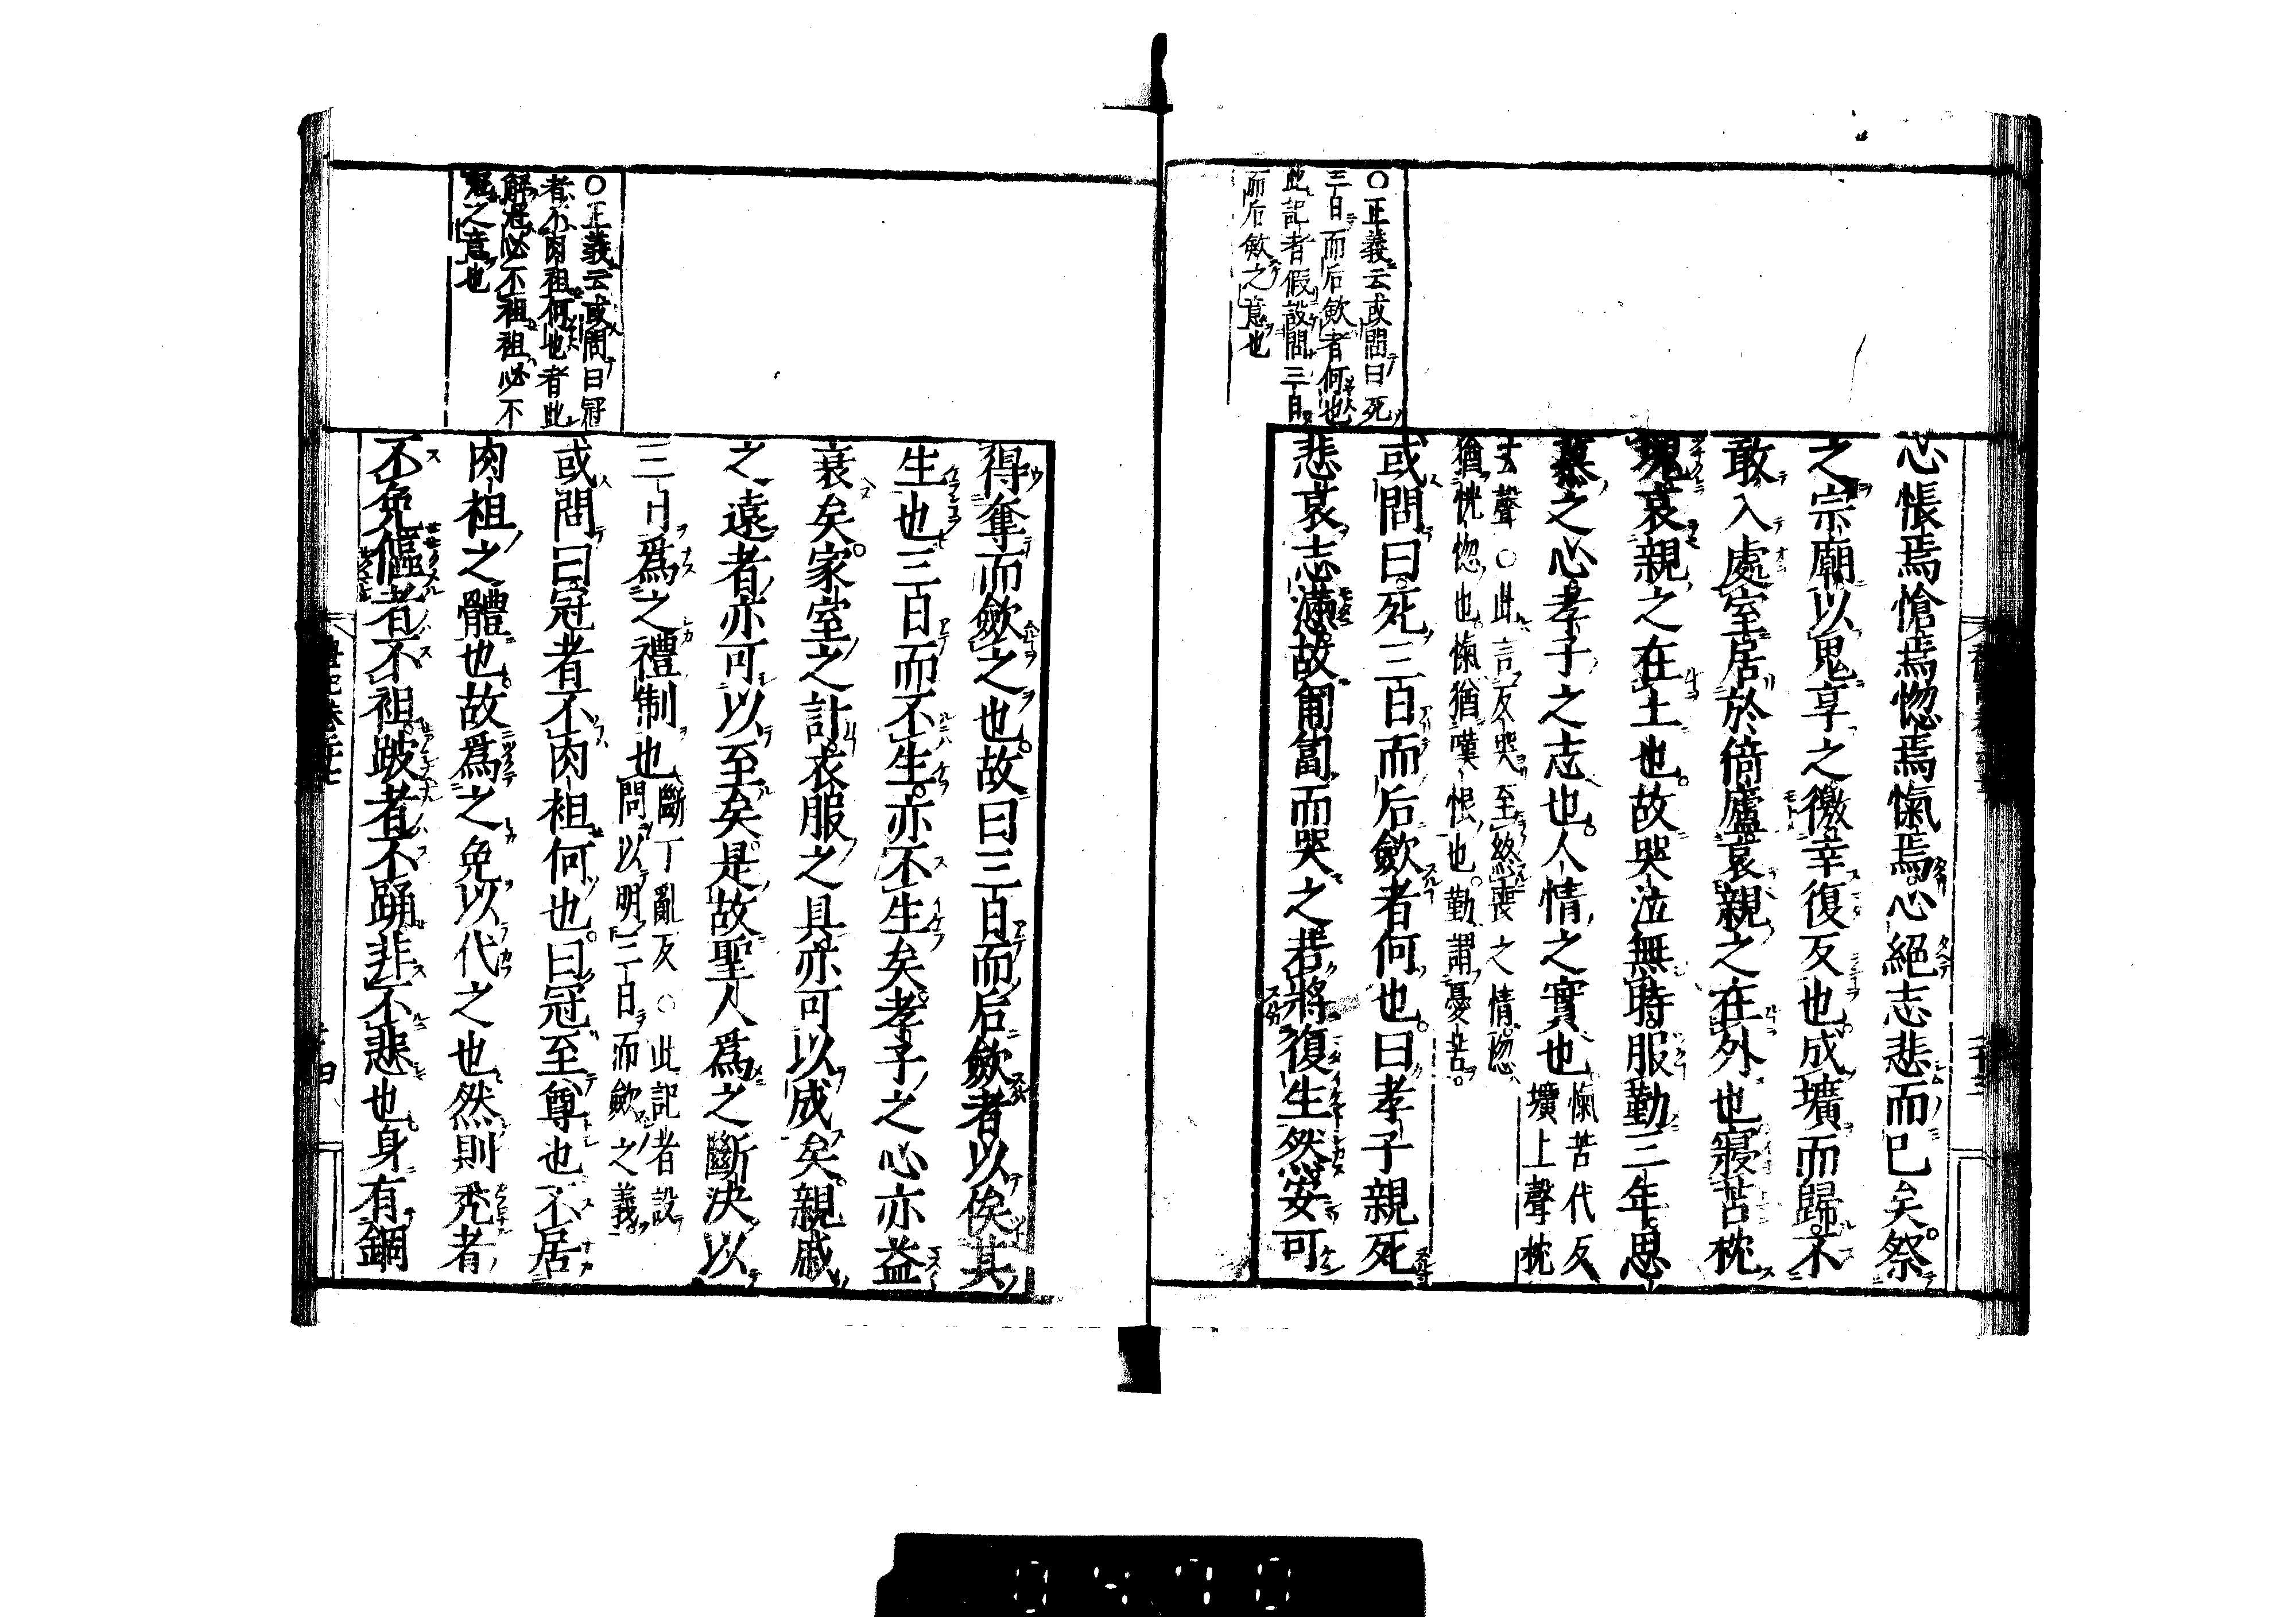 〇正義云或問曰死
三日而后歛者何也
此記者假設問三日
而后歛之意也
心悵焉愴焉惚焉愾焉心絕志悲而已矣祭
之宗廟以鬼享之徼幸復反也成壙而歸不
敢入處室居於倚廬哀親之在外也寢苫枕
塊哀親之在土也故哭泣無時服勤三年思
慕之心孝子之志也人情之實也愾苦代反
壙上聲枕
去聲〇此言反哭至終喪之情惚
猶恍惚也愾猶嘆恨也勤謂憂苦
或問曰死三日而后歛者何也曰孝子親死
悲哀志懣故匍匐而哭之若將復生然安可
〇正義云或問曰冠
者不肉袒何也者此
解冠必不袒袒必不
冠之意也
得奪而歛之也故曰三日而后歛者以俟其
生也三日而不生亦不生矣孝子之心亦益
衰矣家室之計衣服之具亦可以成矣親戚
之遠者亦可以至矣是故聖人爲之斷決以
三日爲之禮制也斷丁亂反〇此記者設
問以明三日而歛之義
或問曰冠者不肉袒何也曰冠至尊也不居
肉袒之體也故爲之免以代之也然則禿者
不免傴者不袒跛者不踊非不悲也身有錮